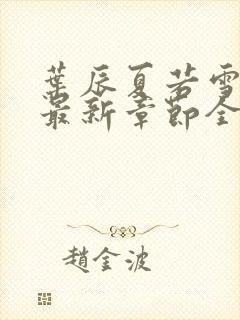 葉辰夏若雪
最新章節全
趙金波